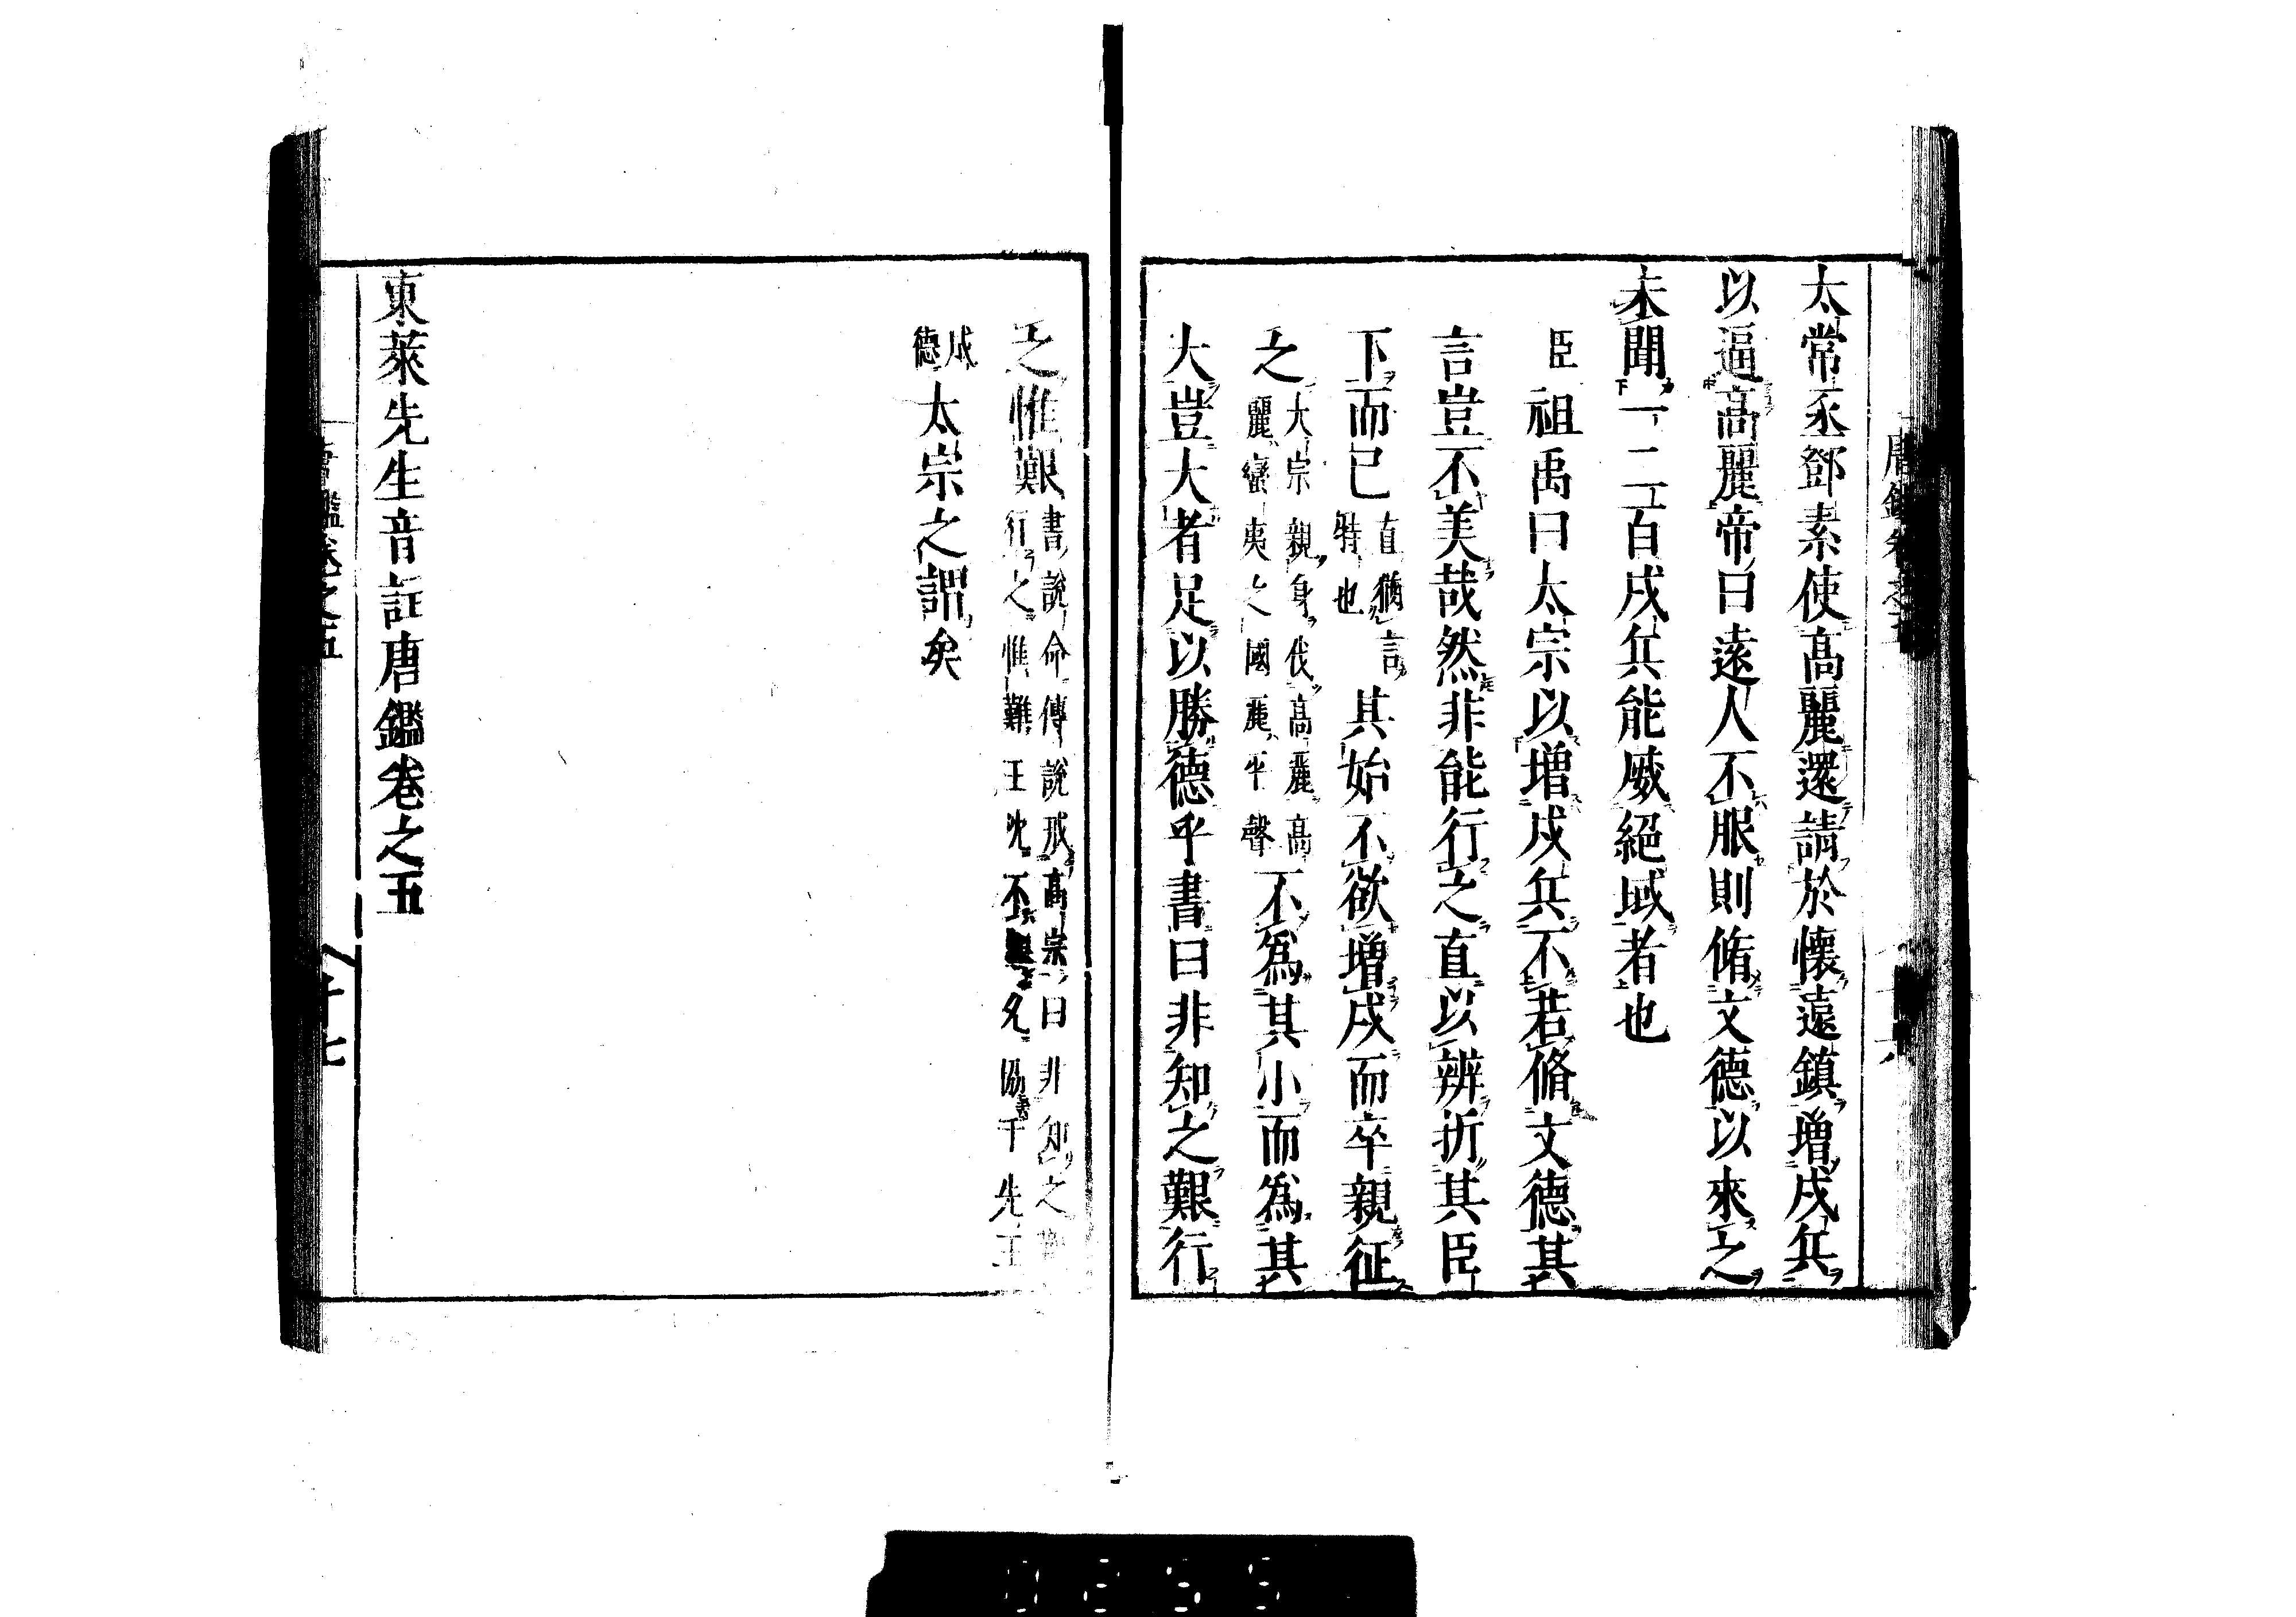 太常丞鄧素使高麗還請於懷遠鎮增戍兵
以逼高麗帝曰遠人不服則脩文德以來之
未聞一二百戍兵能威絕域者也
臣祖禹曰太宗以增戍兵不若脩文德其
言豈不美哉然非能行之直以辨折其臣
下而已
直猶言
特也
其始不欲增戍而卒親征
之
大宗親身伐高麗高
麗蠻夷之國麗平聲
不為其小而為其
大豈大者足以勝德乎書曰非知之艱行
之惟艱
書說命傅說戒高宗曰非知之
行之惟難王忱不艱允協于先王
成
德
太宗之謂矣
東萊先生音註唐鑑卷之五